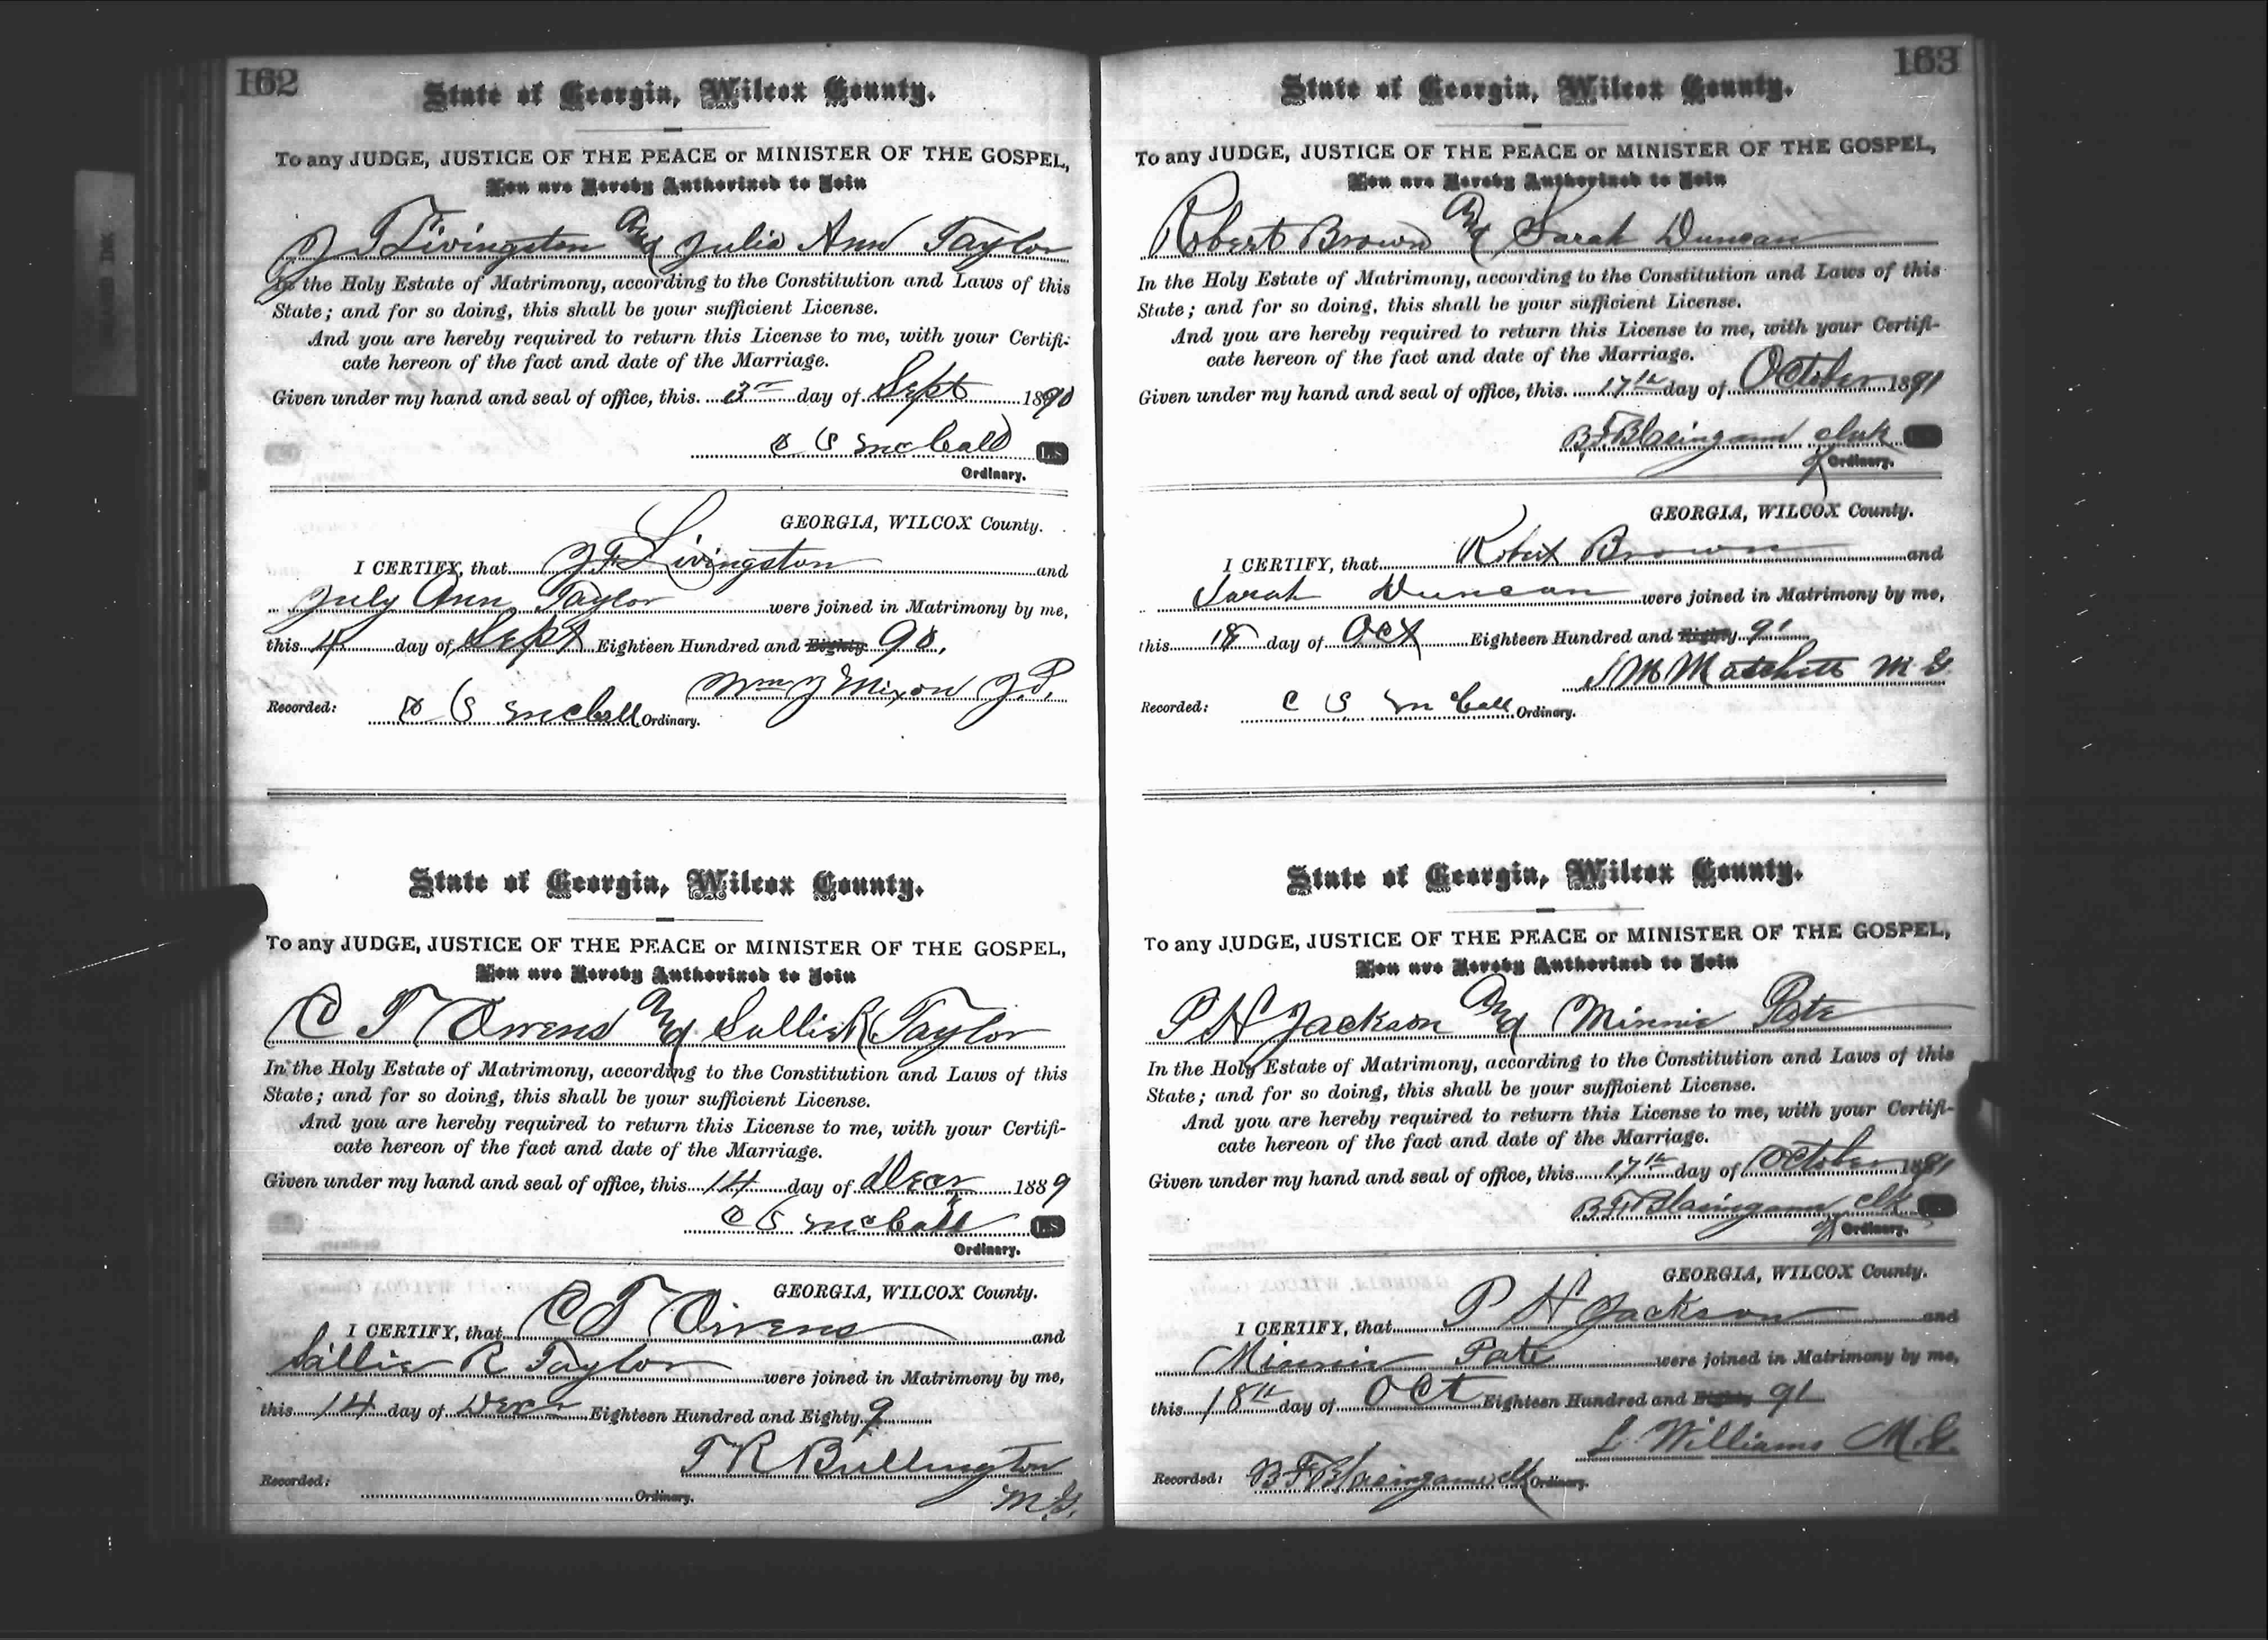 162
State of Georgia, Wilcox County.
To any JUDGE, JUSTICE OF THE PEACE or MINISTER OF THE GOSPEL,
You are Hereby Authorized to Join
J T Livingston And Julia Ann Taylor
In the Holy Estate of Matrimony, according to the Constitution and Laws of this
State; and for so doing, this shall be your sufficient License.
And you are hereby required to return this License to me, with your Certifi-
cate hereon of the fact and date of the Marriage.
Given under my hand and seal of office, this day of Sept 1890
S McCall L.S
Ordinary.
GEORGIA, WILCOX County.
I CERTIFY, that Livingston and
July Ann Taylor were joined in Matrimony by me,
this 4 day of Sept Eighteen Hundred and Eighty 90,
Wm Mixon J.P.
Recorded: S McCall Ordinary.
State of Georgia, Wilcox County.
To any JUDGE, JUSTICE OF THE PEACE or MINISTER OF THE GOSPEL,
You are Hereby Authorized to Join
C T Owens And Sallie R Taylor
In the Holy Estate of Matrimony, according to the Constitution and Laws of this
State; and for so doing, this shall be your sufficient License.
And you are hereby required to return this License to me, with your Certifi-
cate hereon of the fact and date of the Marriage.
Given under my hand and seal of office, this 14 day of Decr 1889
C S McCall L.S
Ordinary.
GEORGIA, WILCOX County.
I CERTIFY, that C T Owens and
Sallie R Taylor were joined in Matrimony by me,
this 14 day of Decr Eighteen Hundred and Eighty 9
T R Bullington
M.G.
Recorded: Ordinary.
163
State of Georgia, Wilcox County.
To any JUDGE, JUSTICE OF THE PEACE or MINISTER OF THE GOSPEL,
You are Hereby Authorized to Join
Robert Brown And Sarah Duncan
In the Holy Estate of Matrimony, according to the Constitution and Laws of this
State; and for so doing, this shall be your sufficient License.
And you are hereby required to return this License to me, with your Certifi-
cate hereon of the fact and date of the Marriage.
Given under my hand and seal of office, this 17th day of October 1891
B.F. Blasingame clerk
Ordinary.
GEORGIA, WILCOX County.
I CERTIFY, that Robert Brown and
Sarah Duncan were joined in Matrimony by me,
this 18 day of Oct Eighteen Hundred and Eighty 91
M.G.
Recorded: C S McCall Ordinary.
State of Georgia, Wilcox County.
To any JUDGE, JUSTICE OF THE PEACE or MINISTER OF THE GOSPEL,
You are Hereby Authorized to Join
P H Jackson And Minnie Pate
In the Holy Estate of Matrimony, according to the Constitution and Laws of this
State; and for so doing, this shall be your sufficient License.
And you are hereby required to return this License to me, with your Certifi-
cate hereon of the fact and date of the Marriage.
Given under my hand and seal of office, this 17th day of October 1891
B.F. Blasingame Clk
Ordinary.
GEORGIA, WILCOX County.
I CERTIFY, that P H Jackson and
Minnie Pate were joined in Matrimony by me,
this 18th day of Oct Eighteen Hundred and Eighty 91
L. Williams M.G.
Recorded: B F Blasingame Clk Ordinary.